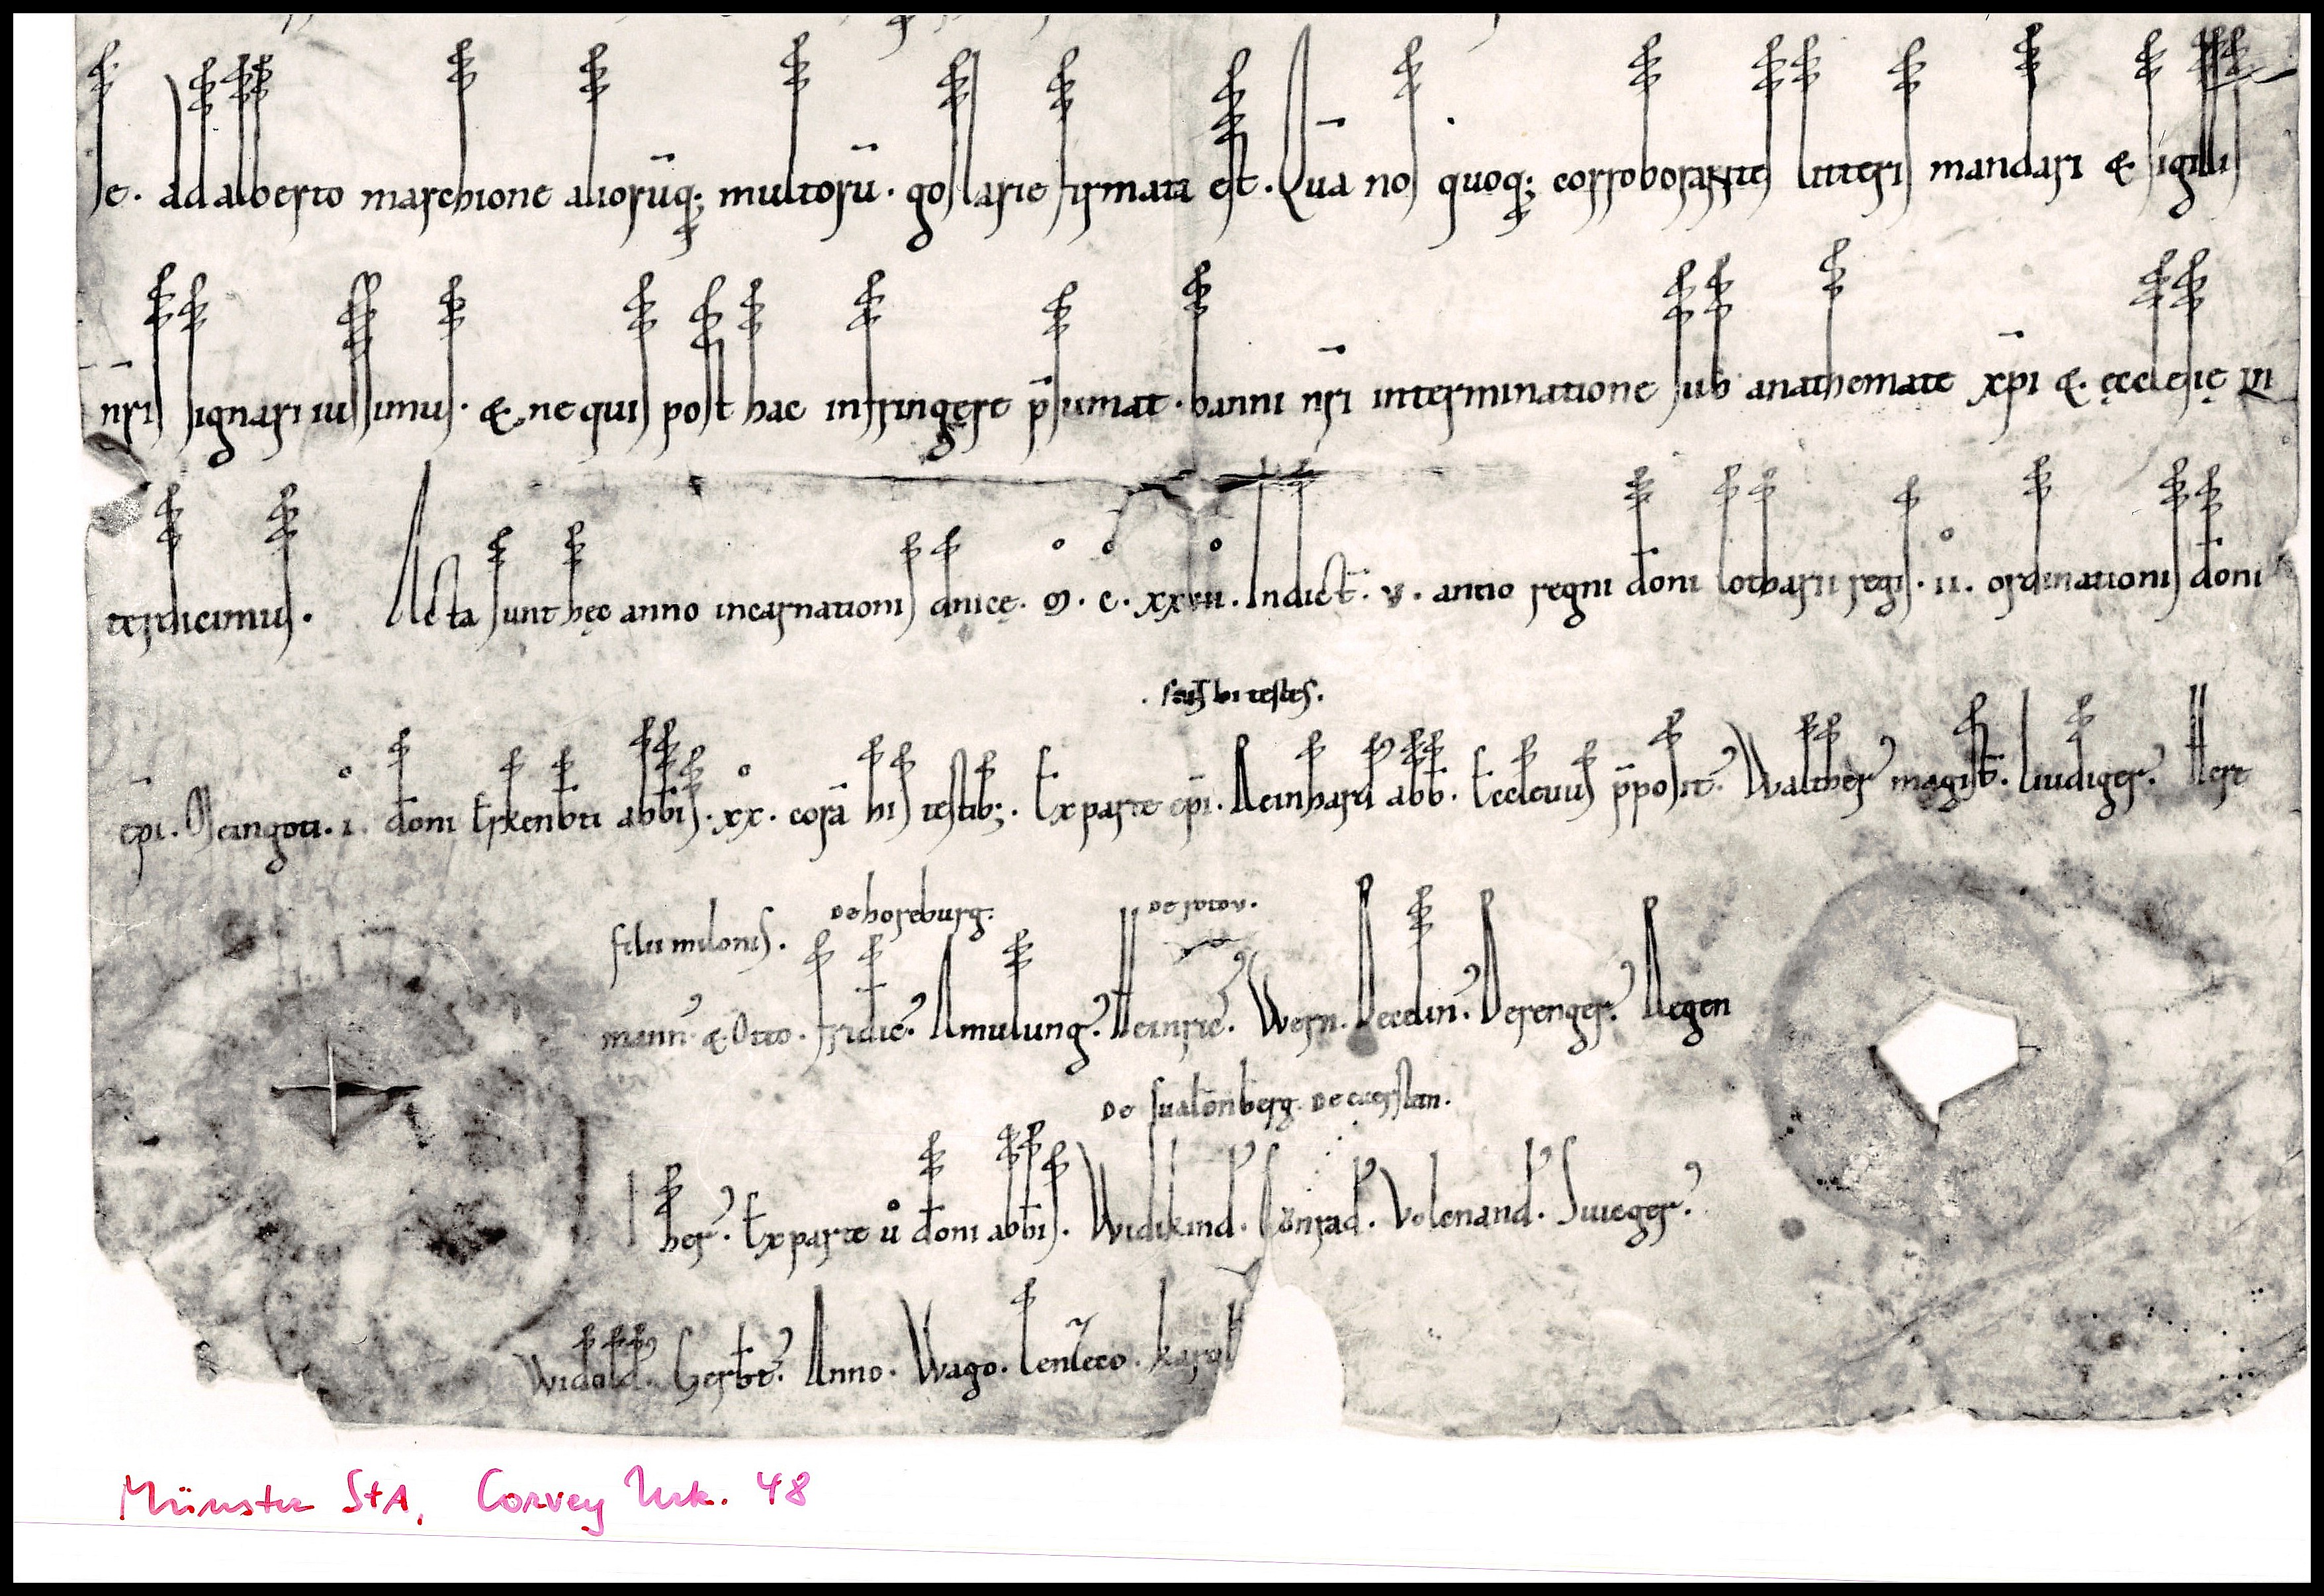 se. adalberto marchione aliorūq; multorū. goslarie firmata est. Quā nos quoq; corroborantes litteris mandari & sigillis
nr̄is signari iussimus. & ne quis post hac infringere p̄sumat. banni nr̄i interminatione sub anathemate xp̄i & ęcclesię in
terdicimus. Acta sunt hęc anno incarnationis dn̄icę. M. c. xxvii. Indict̄. v. anno regni do̅ni lotharii regis. ii. ordinationis do̅ni
hi testes.
ep̄i. Meingoti. i. do̅ni Erkenb̄ti abb̄is. xx. corā his testib;. Ex parte ep̄i. Reinhard abb̄. Ecclevus p̄posit᾿. Walther᾿ magist̄. Liudiger᾿. Here
filii milonis. de horeburg.
mann᾿. & Otto. fridic̄᾿. Amulung᾿. Heinric̄᾿. Wern. Becelin᾿. Berenger᾿. Regen
de sualenberg. de euerstan.
her᾿. Ex parte ů do̅ni abb̄is. Widikind᾿. Cōnrad᾿. Volcnand᾿. Suieger᾿.
Widold᾿. Herb̄t᾿. Anno. Wago. karol
Münster StA, Corvey Urk. 48